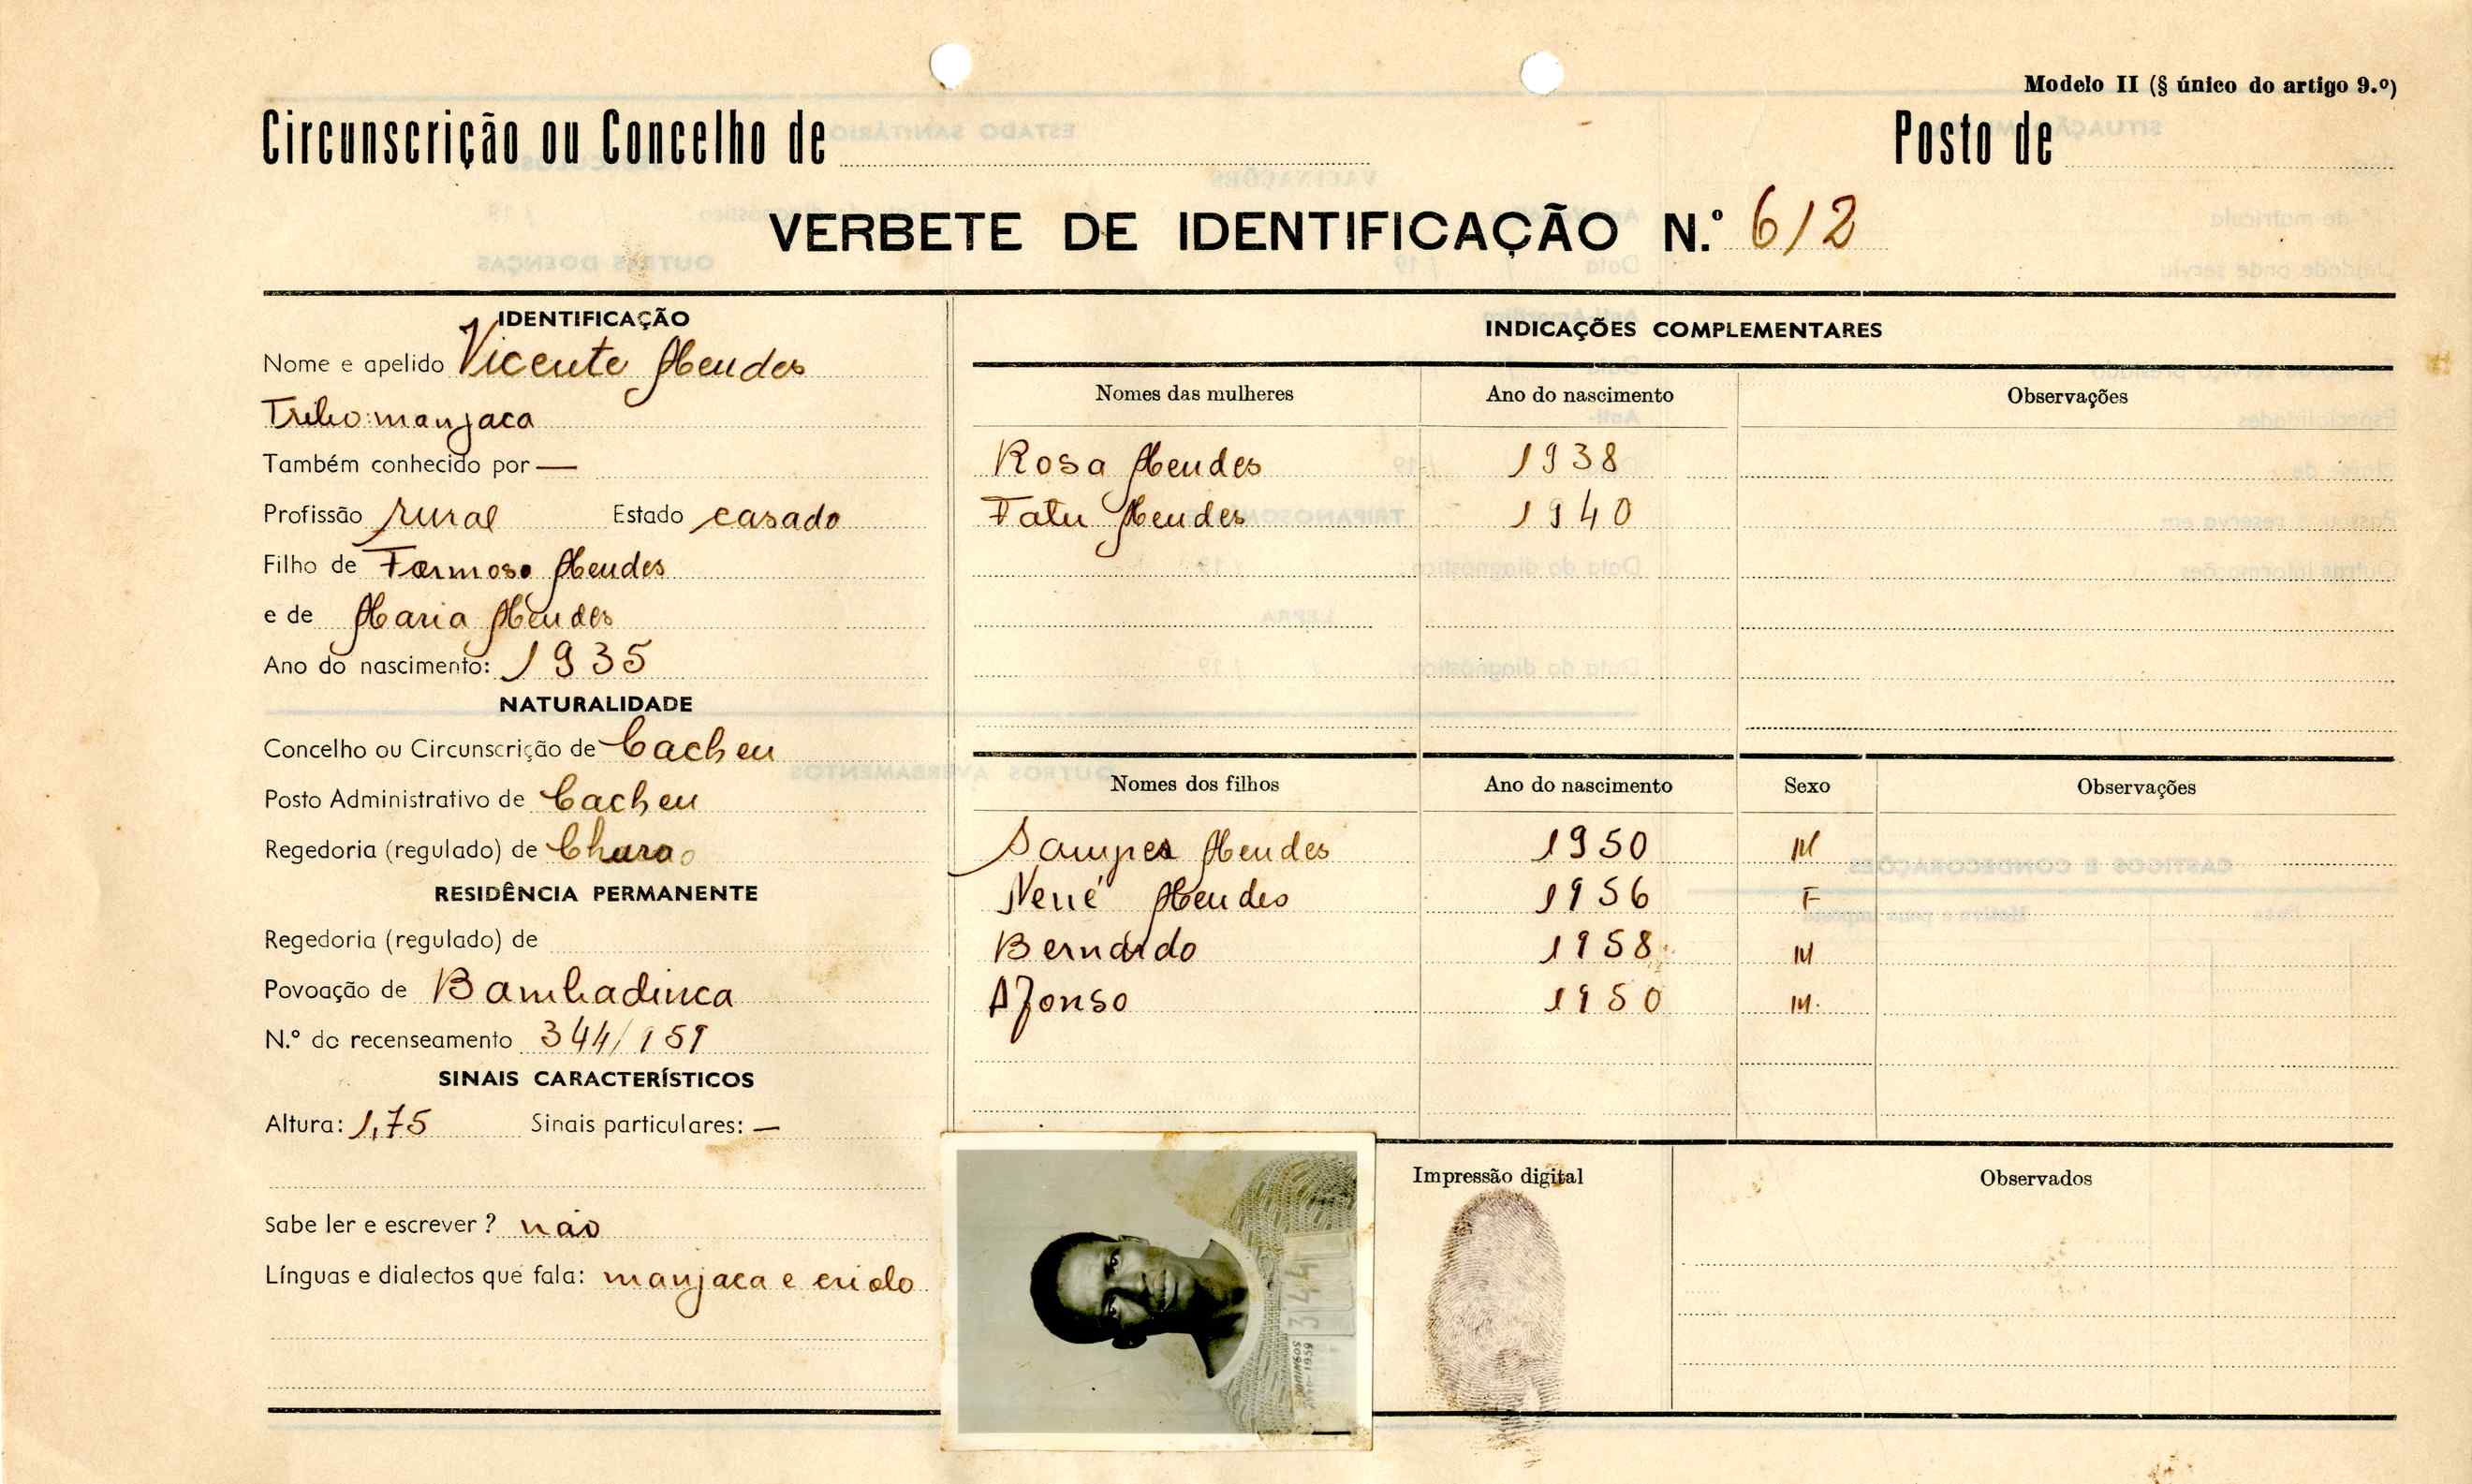 Modelo II (§ único do artigo 9.º)
Circunscrição ou Concelho de
Posto de
VERBETE DE IDENTIFICAÇÃO N.º 612
IDENTIFICAÇÃO
Nome e apelido Vicente Mendes
Tribo: manjaca
Também conhecido por —
Profissão rural Estado casado
Filho de Formoso Mendes
e de Maria Mendes
Ano do nascimento: 1935
NATURALIDADE
Concelho ou Circunscrição de Cacheu
Posto Administrativo de Cacheu
Regedoria (regulado) de
RESIDÊNCIA PERMANENTE
Regedoria (regulado) de
Povoação de Bambadinca
N.º do recenseamento 344/159
SINAIS CARACTERÍSTICOS
Altura: 1,75 Sinais particulares: —
Sabe ler e escrever? não
Línguas e dialectos que fala: manjaca e criolo
INDICAÇÕES COMPLEMENTARES
Nomes das mulheres Ano do nascimento Observações
Rosa Mendes 1938
Fatu Mendes 1940
Nomes dos filhos Ano do nascimento Sexo Observações
Mendes 1950 M
Nené Mendes 1956 F
Bernardo 1958 M
Afonso 1950 M.
Impressão digital
Observados
344
1959